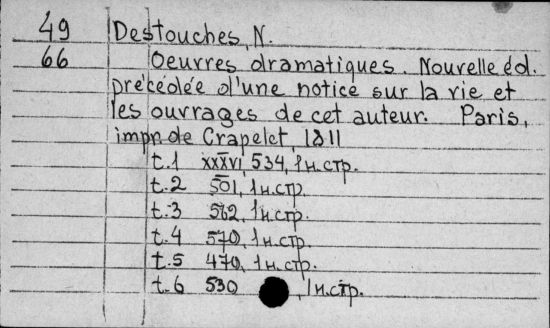 49 Destouches, N.
66 Oeuvres dramatiques. Nouvelle éd.
précédée d'une notice sur la vie et
les ouvrages de cet auteur. Paris,
impr. de Crapelet, 1811
t.1 XXXVI, 534, 1 н.стр.
t.2 501, 1 н.стр.
t.3 562, 1 н.стр.
t.4 570, 1 н.стр.
t.5 470, 1 н.стр.
t.6 530, 1 н.стр.